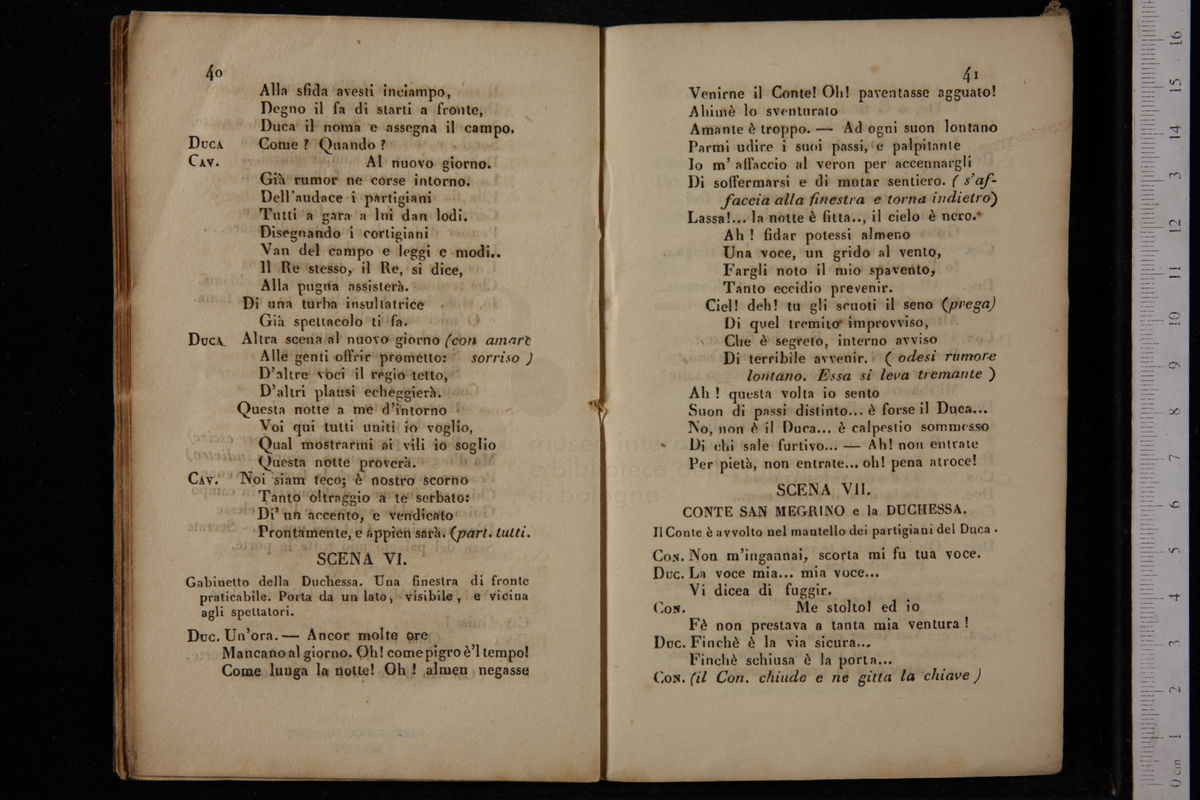 40
Alla sfida avesti inciampo,
Degno il fa di starti a fronte,
Duca il noma e assegna il campo.
DUCA Come ? Quando ?
CAV. Al nuovo giorno.
Già rumor ne corse intorno.
Dell'audace i partigiani
Tutti a gara a lui dan lodi.
Disegnando i cortigiani
Van del campo e leggi e modi..
Il Re stesso, il Re, si dice,
Alla pugna assisterà.
Di una turba insultatrice
Già spettacolo ti fa.
DUCA Altra scena al nuovo giorno (con amaro
Alle genti offrir prometto: sorriso )
D'altre voci il regio tetto,
D'altri plausi echeggierà.
Questa notte a me d'intorno
Voi qui tutti uniti io voglio,
Qual mostrarmi ai vili io soglio
Questa notte proverà.
CAV. Noi siam teco; è nostro scorno
Tanto oltraggio a te serbato:
Di' un accento, e vendicato
Prontamente, e appien sarà. (part. tutti.
SCENA VI.
Gabinetto della Duchessa. Una finestra di fronte
praticabile. Porta da un lato, visibile, e vicina
agli spettatori.
DUC. Un'ora.— Ancor molte ore
Mancano al giorno. Oh! come pigro è'l tempo!
Come lunga la notte! Oh ! almen negasse
41
Venirne il Conte! Oh! paventasse agguato!
Ahimè lo sventurato
Amante è troppo. — Ad ogni suon lontano
Parmi udire i suoi passi, e palpitante
Io m' affaccio al veron per accennargli
Di soffermarsi e di mutar sentiero. ( s'af-
faccia alla finestra e torna indietro)
Lassa!... la notte è fitta.., il cielo è nero.
Ah ! fidar potessi almeno
Una voce, un grido al vento,
Fargli noto il mio spavento,
Tanto eccidio prevenir.
Ciel! deh! tu gli scuoti il seno (prega)
Di quel tremito improvviso,
Che è segreto, interno avviso
Di terribile avvenir. ( odesi rumore
lontano. Essa si leva tremante )
Ah ! questa volta io sento
Suon di passi distinto... è forse il Duca...
No, non è il Duca... è calpestio sommesso
Di chi sale furtivo... — Ah! non entrate
Per pietà, non entrate... oh! pena atroce!
SCENA VII.
CONTE SAN MEGRINO e la DUCHESSA.
Il Conte è avvolto nel mantello dei partigiani del Duca .
CON. Non m'ingannai, scorta mi fu tua voce.
DUC. La voce mia... mia voce...
Vi dicea di fuggir.
CON. Me stolto! ed io
Fè non prestava a tanta mia ventura !
DUC. Finchè è la via sicura...
Finchè schiusa è la porta...
CON. (il Con. chiude e ne gitta la chiave )
museo
biblioteca
di bologna
0 cm 1 2 3 4 5 6 7 8 9 10 11 12 13 14 15 16